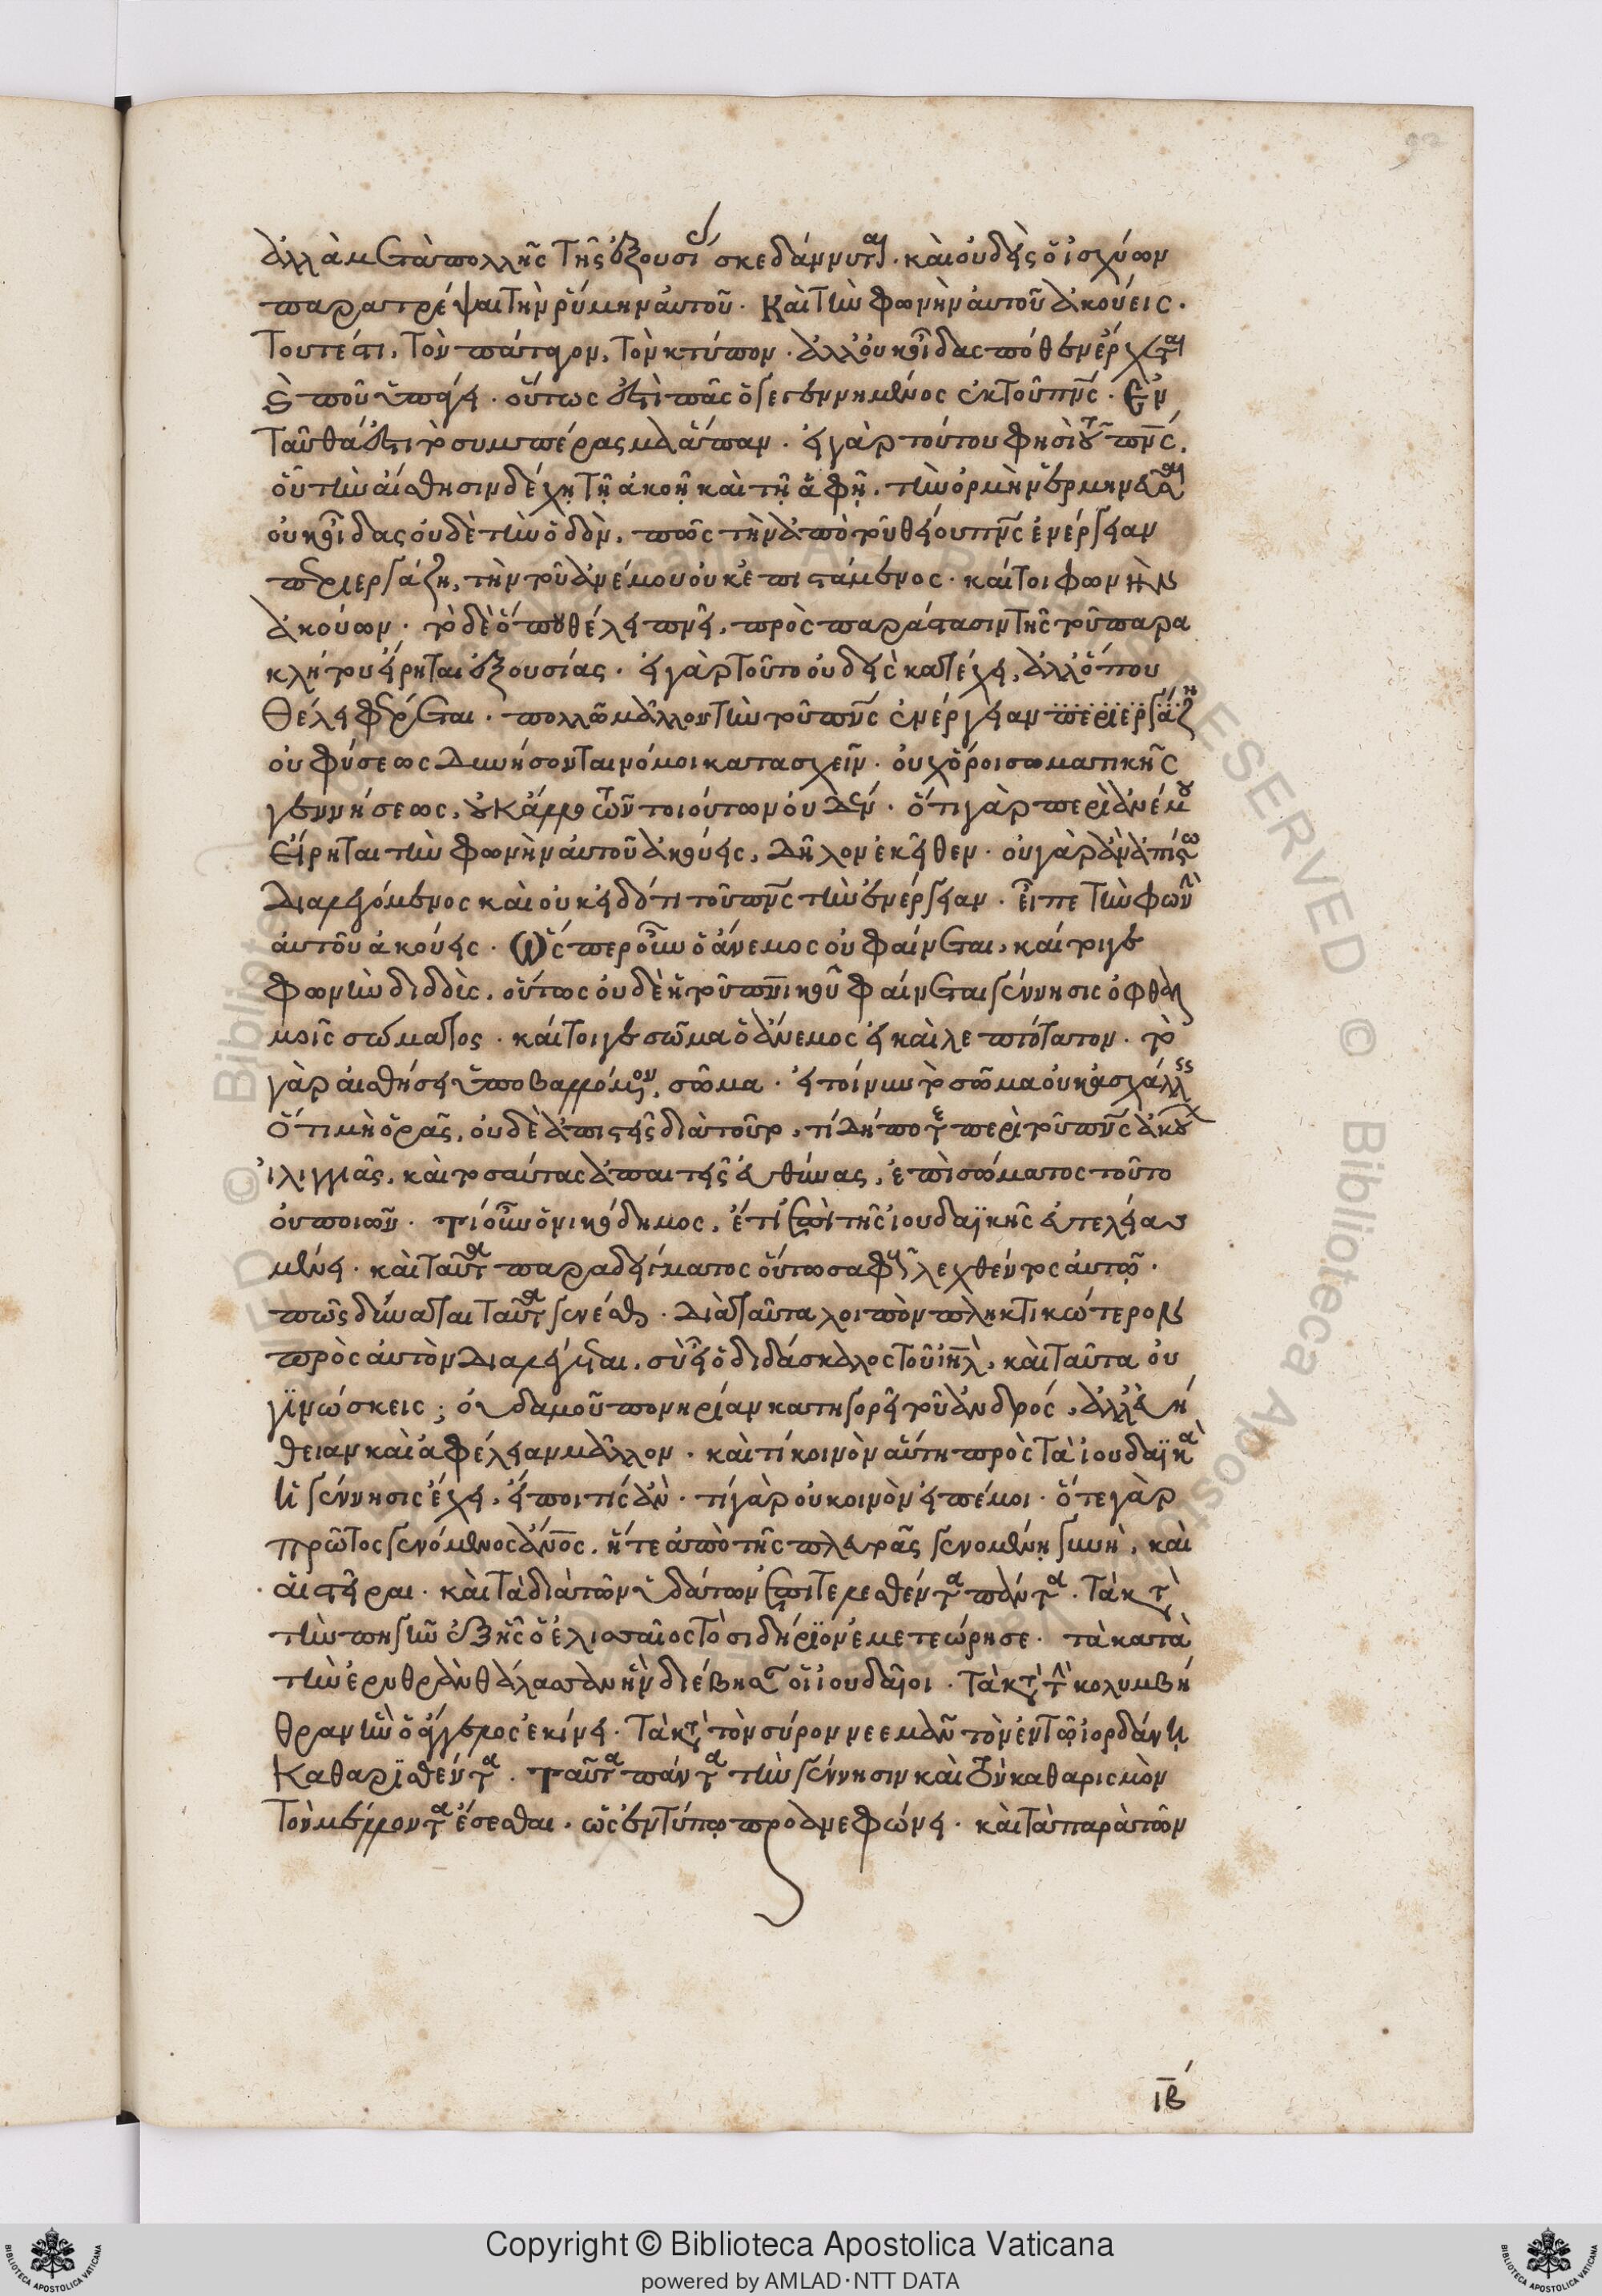 ἀλλὰ μετὰ πολλῆς τῆς ἐξουσίας σκεδάννυται. καὶ οὐδεὶς ὁ ἰσχύων
παρατρέψαι τὴν ῥύμην αὐτοῦ. Καὶ τὴν φωνὴν αὐτοῦ ἀκούεις.
Τουτέστι, τὸν πάταγον, τὸν κτύπον. ἀλλ' οὐκ οἶδας πόθεν ἔρχεται
καὶ ποῦ ὑπάγει. οὕτως ἐστὶ πᾶς ὁ γεγεννημένος ἐκ τοῦ πνς. Ἐν
ταῦθά ἐστι τὸ συμπέρασμα ἅπαν. εἰ γὰρ τούτου φησὶ τοῦ πνς,
οὗ τὴν αἴσθησιν δέχῃ τῇ ἀκοῇ καὶ τῇ ἁφῇ, τὴν ὁρμὴν ἑρμηνεῦσαι
οὐκ οἶδας οὐδὲ τὴν ὁδὸν, πῶς τὴν ἀπὸ τοῦ θείου πνς ἐνέργειαν
περιεργάζῃ, τὴν τοῦ ἀνέμου οὐκ ἐπιστάμενος. καίτοι φωνῆς
ἀκούων. τὸ δὲ ὅπου θέλει πνεῖ, πρὸς παράστασιν τῆς τοῦ παρα
κλήτου εἴρηται ἐξουσίας. εἰ γὰρ τοῦτο οὐδεὶς κατέχει, ἀλλ' ὅπου
θέλει φέρεται. πολλῷ μᾶλλον τὴν τοῦ πνς ἐνέργειαν περιεργάζῃ
οὐ φύσεως δυνήσονται νόμοι κατασχεῖν. οὐχ ὅροι σωματικῆς
γεννήσεως, οὐκ ἄλλο τῶν τοιούτων οὐδέν. ὅτι γὰρ περὶ ἀνέμου
εἴρηται τὴν φωνὴν αὐτοῦ ἀκούεις, δῆλον ἐκεῖθεν. οὐ γὰρ ἂν ἀπίστῳ
διαλεγόμενος καὶ οὐκ εἰδότι τοῦ πνς τὴν ἐνέργειαν. εἶπε τὴν φωνὴν
αὐτοῦ ἀκούεις. Ὥσπερ οὖν ὁ ἄνεμος οὐ φαίνεται, καίτοιγε
φωνὴν διδοὺς, οὕτως οὐδὲ ἡ τοῦ πνικοῦ φαίνεται γέννησις ὀφθαλ
μοῖς σώματος. καίτοιγε σῶμα ὁ ἄνεμος εἰ καὶ λεπτότατον. τὸ
γὰρ αἰσθήσει ὑποβαλλόμενον, σῶμα. εἰ τοίνυν τὸ σῶμα οὐκ ἀσχάλλεις
ὅτι μὴ ὁρᾷς, οὐδὲ ἀπιστεῖς διὰ τοῦτο, τί δήποτε περὶ τοῦ πνς ἀκούων
ἰλιγγιᾷς, καὶ τοσαύτας ἀπαιτεῖς εὐθύνας, ἐπὶ σώματος τοῦτο
οὐ ποιῶν. τί οὖν ὁ νικόδημος, ἔτι ἐπὶ τῆς ἰουδαϊκῆς εὐτελείας
μένει. καὶ ταῦτα παραδείγματος οὕτω σαφοῦς λεχθέντος αὐτῷ.
πῶς δύναται ταῦτα γενέσθαι. διὰ ταῦτα λοιπὸν πληκτικώτερον
πρὸς αὐτὸν διαλέγεται, σὺ εἶ ὁ διδάσκαλος τοῦ ιηλ, καὶ ταῦτα οὐ
γινώσκεις; οὐδαμοῦ πονηρίαν κατηγορεῖ τοῦ ἀνδρός, ἀλλ' εὐή
θειαν καὶ ἀφέλειαν μᾶλλον. καὶ τί κοινὸν αὕτη πρὸς τὰ ἰουδαϊκὰ
ἡ γέννησις ἔχει, εἴποι τις ἄν. τί γὰρ οὐ κοινὸν εἰπέ μοι. ὅ τε γὰρ
πρῶτος γενόμενος ἄνος. ἥ τε ἀπὸ τῆς πλευρᾶς γενομένη γυνὴ, καὶ
αἱ στεῖραι. καὶ τὰ διὰ τῶν ὑδάτων ἐπιτελεσθέντα πάντα. τὰ κατὰ
τὴν πηγὴν ἐξ ἧς ὁ ἐλισσαῖος τὸ σιδήριον ἐμετεώρησε. τὰ κατὰ
τὴν ἐρυθρὰν θάλασσαν ἣν διέβησαν οἱ ἰουδαῖοι. τὰ κατὰ τὴν κολυμβή
θραν ἣν ὁ ἄγγελος ἐκίνει. τὰ κατὰ τὸν σύρον νεεμὰν τὸν ἐν τῷ ἰορδάνῃ
καθαρισθέντα. ταῦτα πάντα τὴν γέννησιν καὶ τὸν καθαρισμὸν
τὸν μέλλοντα ἔσεσθαι. ὡς ἐν τύπῳ προανεφώνει. καὶ τὰ παρὰ τῶν
ιβ
Copyright © Biblioteca Apostolica Vaticana
powered by AMLAD·NTT DATA